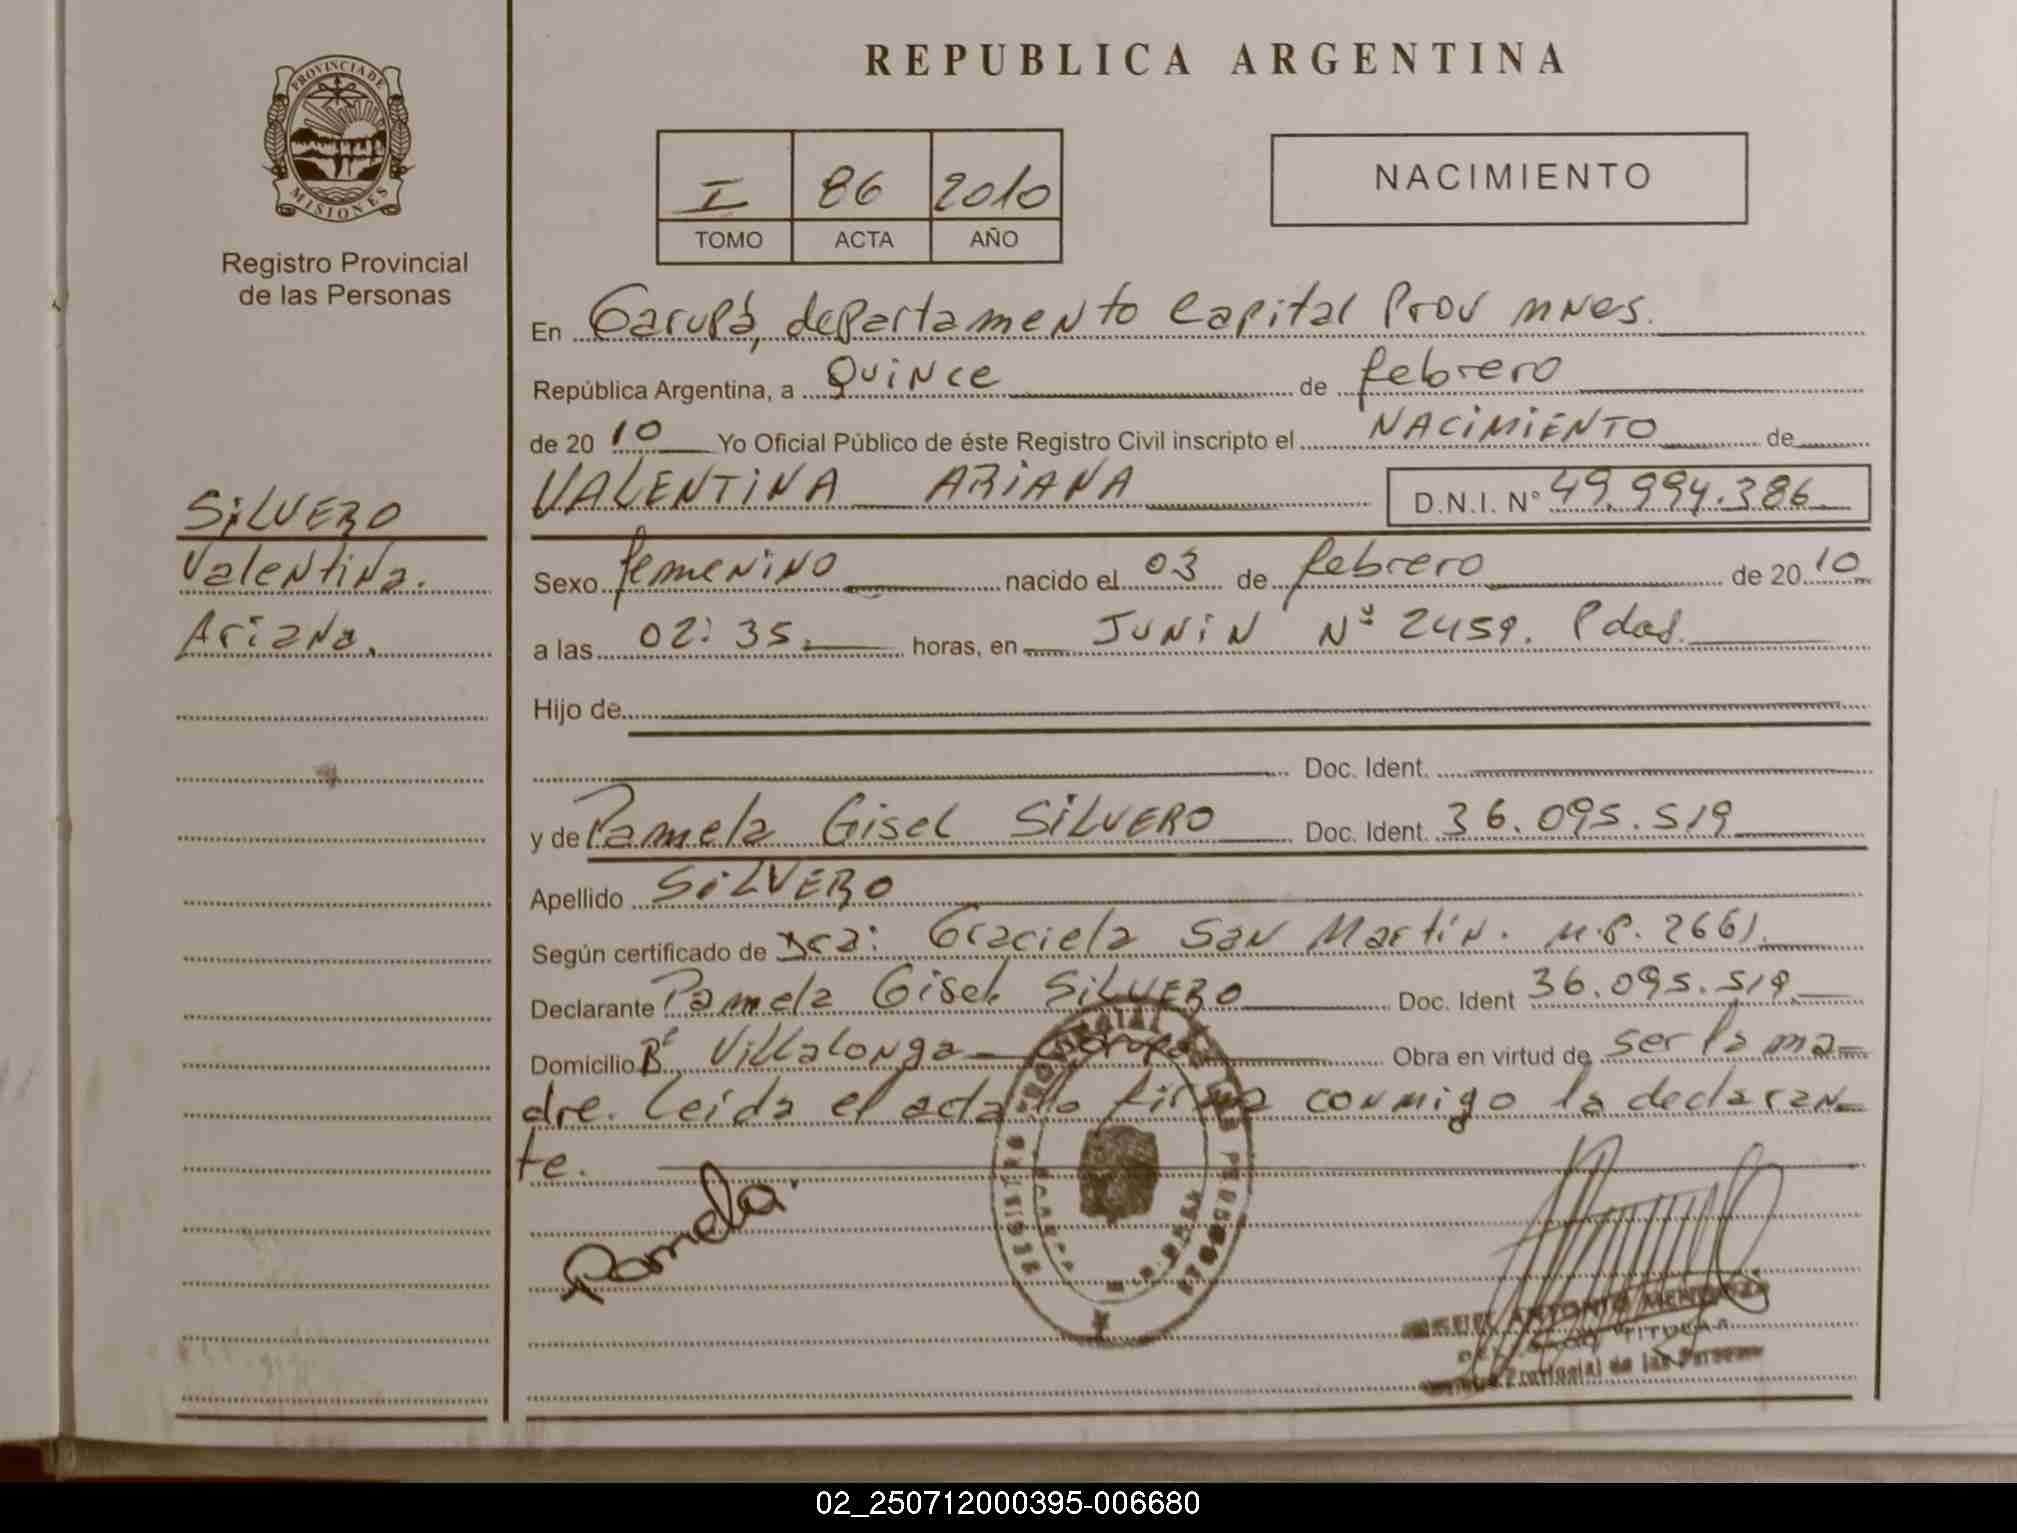 PROVINCIA DE
MISIONES
Registro Provincial
de las Personas
SILVERO
Valentina.
Ariana.
REPUBLICA ARGENTINA
I 86 2010
TOMO ACTA AÑO
NACIMIENTO
En Garupá, departamento Capital Prov mnes.
República Argentina, a Quince de febrero
de 2010 Yo Oficial Público de éste Registro Civil inscripto el NACIMIENTO de
VALENTINA ARIANA D.N.I. N° 49.994.386
Sexo femenino nacido el 03 de febrero de 2010
a las 02:35. horas, en JUNIN Nº 2459. Pdas.
Hijo de
Doc. Ident.
y de Pamela Gisel SILVERO Doc. Ident. 36.095.519
Apellido SILVERO
Según certificado de Dra: Graciela San Martín. M.P. 2661.
Declarante Pamela Gisel SILVERO Doc. Ident 36.095.519.
Domicilio Bº Villalonga - Garupá Obra en virtud de ser la ma-
dre. Leída el acta la firma conmigo la declaran-
te.
Pamela.
ANTONIO MENDOZA
TITULAR
Provincial de las Personas
02_250712000395-006680